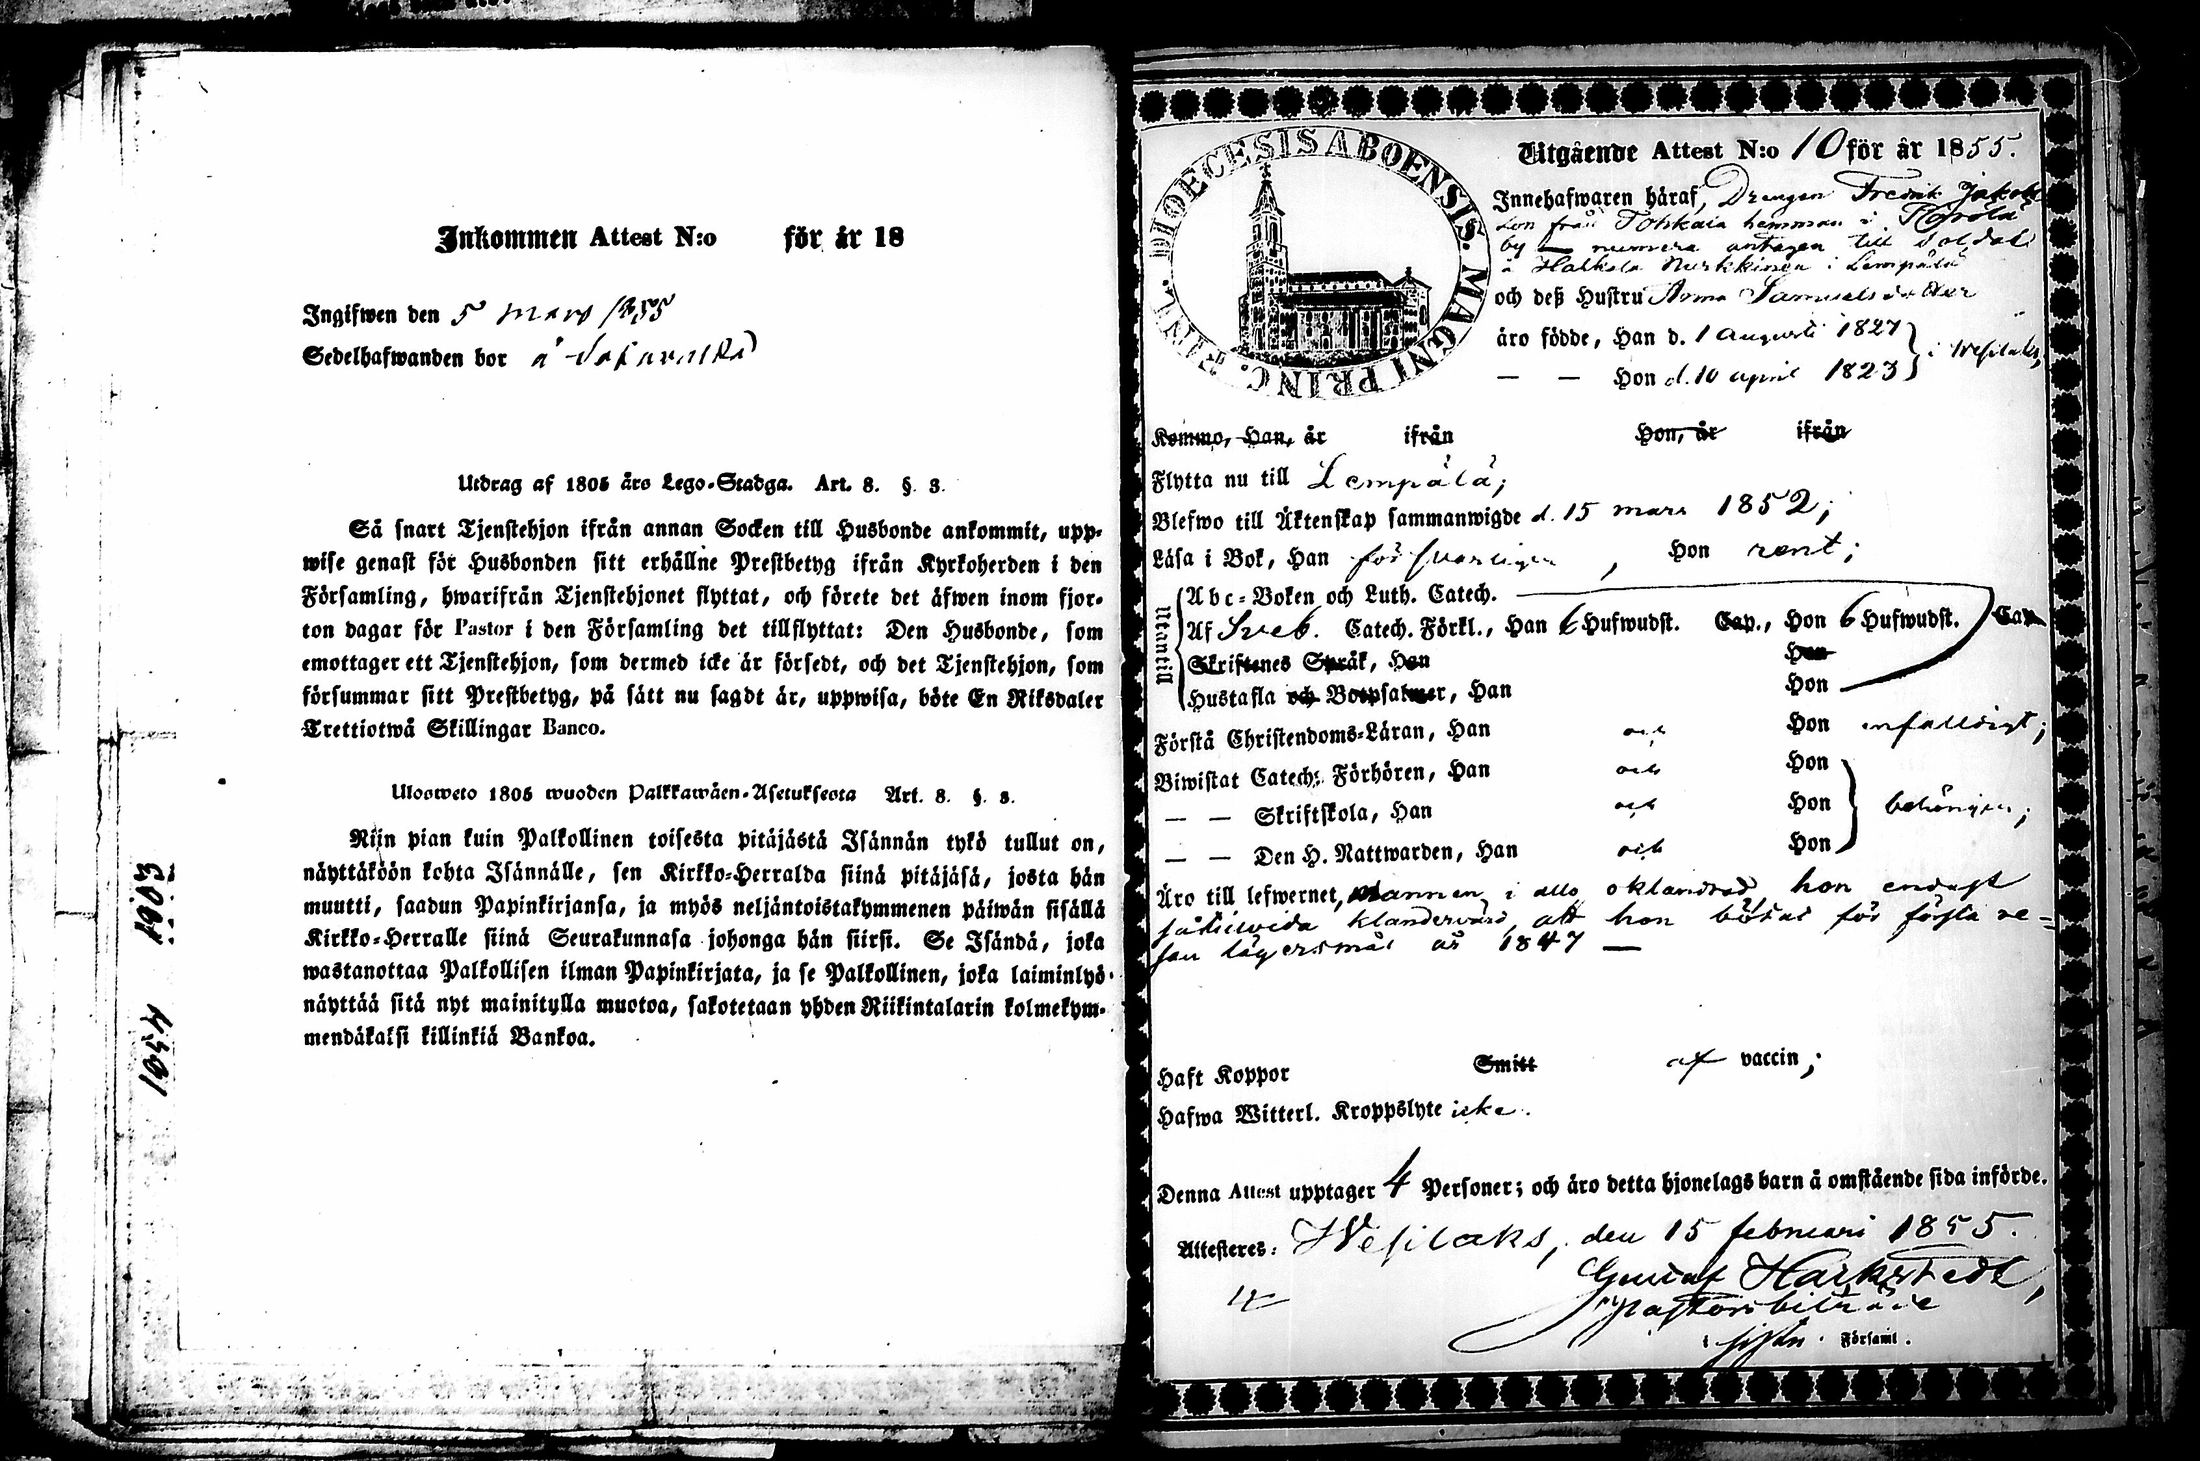 Inkommen Attest N:o för år 18
Ingifwen den 5 mars 1855
Sedelhafwanden bor å
Utdrag af 1805 års Lego-Stadga. Art. 8. §. 3.
Så snart Tjenstehjon ifrån annan Socken till Husbonde ankommit, upp-
wise genast för Husbonden sitt erhållne Prestbetyg ifrån Kyrkoherden i den
Församling, hwarifrån Tjenstehjonet flyttat, och förete det äfwen inom fjor-
ton dagar för Pastor i den Församling det tillflyttat: Den Husbonde, som
emottager ett Tjenstehjon, som dermed icke är försedt, och det Tjenstehjon, som
försummar sitt Prestbetyg, på sätt nu sagdt är, uppwisa, böte En Riksdaler
Trettiotwå Skillingar Banco.
Ulosweto 1805 wuoden Palkkawäen-Asetuksesta Art. 8. §. 3.
Niin pian kuin Palkollinen toisesta pitäjästä Isännän tykö tullut on,
näyttäköön kohta Isännälle, sen Kirkko-Herralda siinä pitäjäsä, josta hän
muutti, saadun Papinkirjansa, ja myös neljäntoistakymmenen päiwän sisällä
Kirkko-Herralle siinä Seurakunnasa johonga hän siirsi. Se Isändä, joka
wastanottaa Palkollisen ilman Papinkirjata, ja se Palkollinen, joka laiminlyö
näyttää sitä nyt mainitulla muotoa, sakotetaan yhden Riikintalarin kolmekym-
mendäkaksi killinkiä Bankoa.
DIOECESIS ABOENSIS. MAGNI PRINC. FINL.
Utgående Attest N:o 10 för år 1855.
Innehafwaren häraf, Drengen Fredrik Jakobs
son från Tohkala hemman i
by — numera antagen till Soldat
å Nurkkinen i Lempälä
och deß Hustru Anna Samuelsdotter
äro födde, Han d. 1 augusti 1827
— — Hon d. 10 april 1823 } i Wesilaks,
Kommo, Han, år ifrån Hon, år ifrån
Flytta nu till Lempälä;
Blefwo till Äktenskap sammanwigde d. 15 mars 1852;
Läsa i Bok, Han försvarligen, Hon rent;
Utantill
Abc-Boken och Luth. Catech.
Af Sveb. Catech. Förkl., Han 6 Hufwudst. Cap., Hon 6 Hufwudst. Cap.
Skriftenes Språk, Han Hon
Hustafla och Botpsalmer, Han Hon
Förstå Christendoms-Läran, Han och Hon enfalldigt;
Biwistat Catech: Förhören, Han och Hon
— — Skriftskola, Han och Hon behörigen;
— — Den H. Nattwarden, Han och Hon
Äro till lefwernet, mannen i allo oklandrad, hon endast
såtillvida klandervärd, att hon bötat för första re-
san lägersmål år 1847 —
Haft Koppor Smitt af vaccin;
Hafwa Witterl. Kroppslyte icke.
Denna Attest upptager 4 Personer; och äro detta hjonelags barn å omstående sida införde.
Attesteres: Wesilaks, den 15 februari 1855.
Gustaf Harkstedt,
Pastorsbiträde
i Församl.